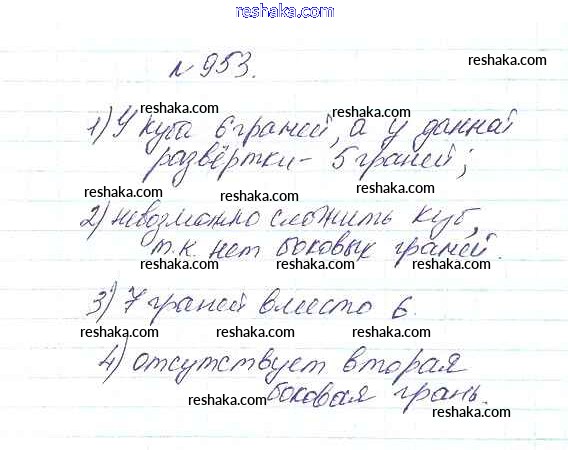 reshaka.com
№ 953.
reshaka.com
reshaka.com
reshaka.com
1) У куба 6 граней, а у данной
reshaka.com
развёртки - 5 граней;
reshaka.com
reshaka.com
2) невозможно сложить куб,
reshaka.com
т.к. нет боковых граней.
reshaka.com
3) 7 граней вместо 6.
reshaka.com
reshaka.com
4) отсутствует вторая
reshaka.com
боковая грань.
reshaka.com
reshaka.com